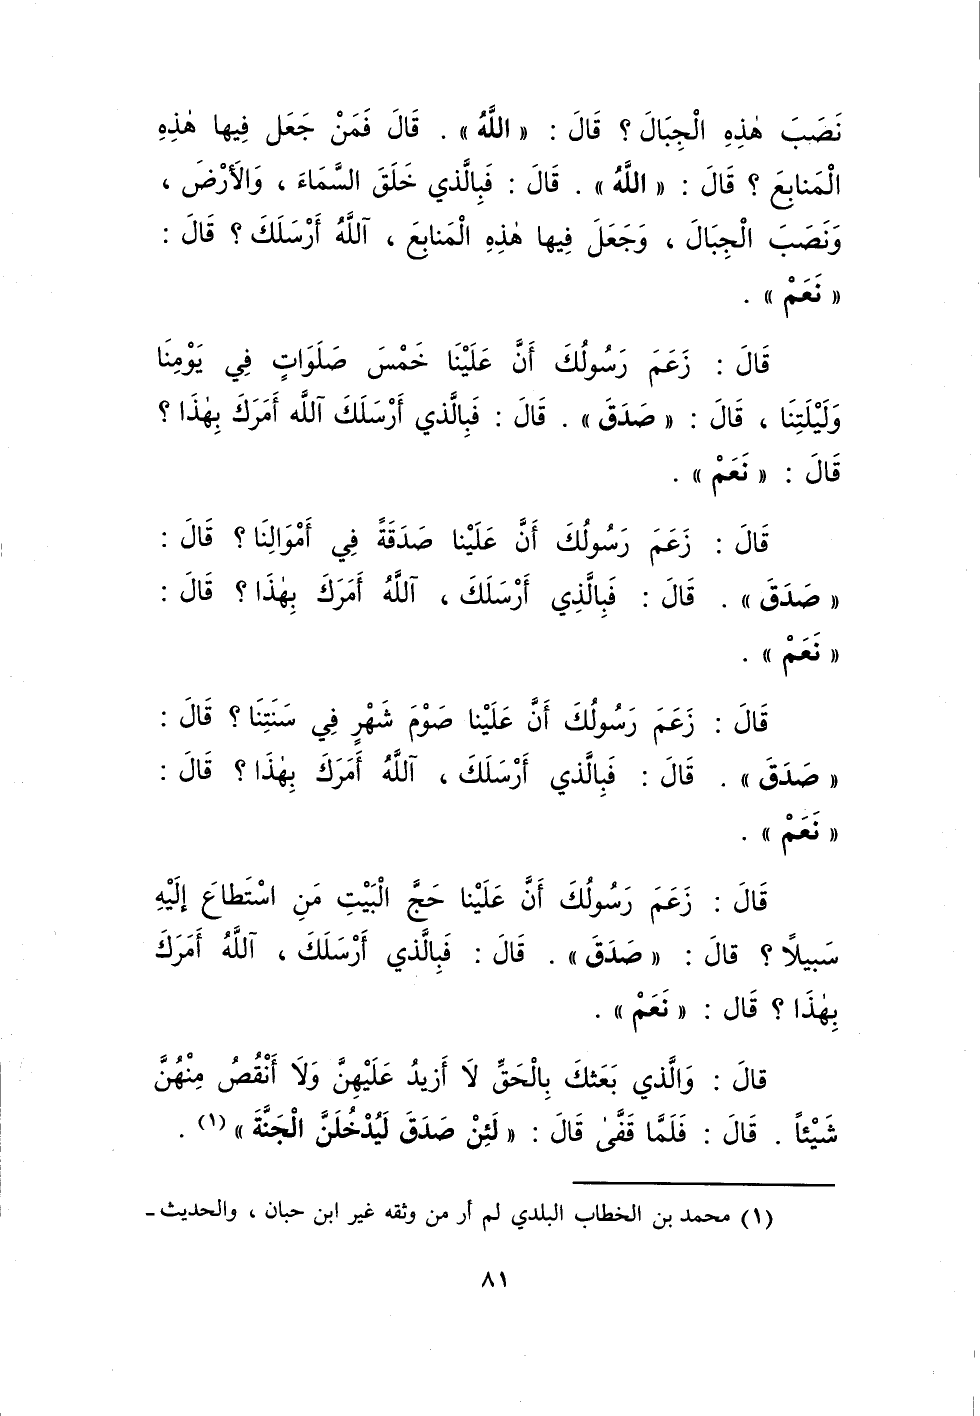 نَصَبَ هٰذِهِ الْجِبَالَ ؟ قَالَ : « اللَّهُ » . قَالَ فَمَنْ جَعَل فِيها هٰذِهِ
الْمَنابِعَ ؟ قَالَ : « اللَّهُ » . قَالَ : فَبِالَّذي خَلَقَ السَّمَاءَ ، وَالأَرْضَ ،
وَنَصَبَ الْجِبَالَ ، وَجَعَلَ فِيها هٰذِهِ الْمَنابِعَ ، آللَّهُ أَرْسَلَكَ ؟ قَالَ :
« نَعَمْ » .
قَالَ : زَعَمَ رَسُولُكَ أَنَّ عَلَيْنَا خَمْسَ صَلَوَاتٍ فِي يَوْمِنَا
وَلَيْلَتِنَا ، قَالَ : « صَدَقَ » . قَالَ : فَبِالَّذي أَرْسَلَكَ آللَّه أَمَرَكَ بِهٰذَا ؟
قَالَ : « نَعَمْ » .
قَالَ : زَعَمَ رَسُولُكَ أَنَّ عَلَيْنا صَدَقَةً فِي أَمْوَالِنَا ؟ قَالَ :
« صَدَقَ » . قَالَ : فَبِالَّذِي أَرْسَلَكَ ، آللَّهُ أَمَرَكَ بِهٰذَا ؟ قَالَ :
« نَعَمْ » .
قَالَ : زَعَمَ رَسُولُكَ أَنَّ عَلَيْنا صَوْمَ شَهْرٍ فِي سَنَتِنَا ؟ قَالَ :
« صَدَقَ » . قَالَ : فَبِالَّذي أَرْسَلَكَ ، آللَّهُ أَمَرَكَ بِهٰذَا ؟ قَالَ :
« نَعَمْ » .
قَالَ : زَعَمَ رَسُولُكَ أَنَّ عَلَيْنا حَجَّ الْبَيْتِ مَنِ اسْتَطاعَ إِلَيْهِ
سَبيلاً ؟ قالَ : « صَدَقَ » . قَالَ : فَبِالَّذي أَرْسَلَكَ ، آللَّهُ أَمَرَكَ
بِهٰذَا ؟ قَال : « نَعَمْ » .
قالَ : وَالَّذي بَعَثكَ بِالْحَقِّ لاَ أَزيدُ عَلَيْهِنَّ وَلاَ أَنْقُصُ مِنْهُنَّ
شَيْئاً . قَالَ : فَلَمَّا قَفَّىٰ قَالَ : « لَئِنْ صَدَقَ لَيَدْخُلَنَّ الْجَنَّةَ » (١) .
(١) محمد بن الخطاب البلدي لم أر من وثقه غير ابن حبان ، والحديث ـ
٨١